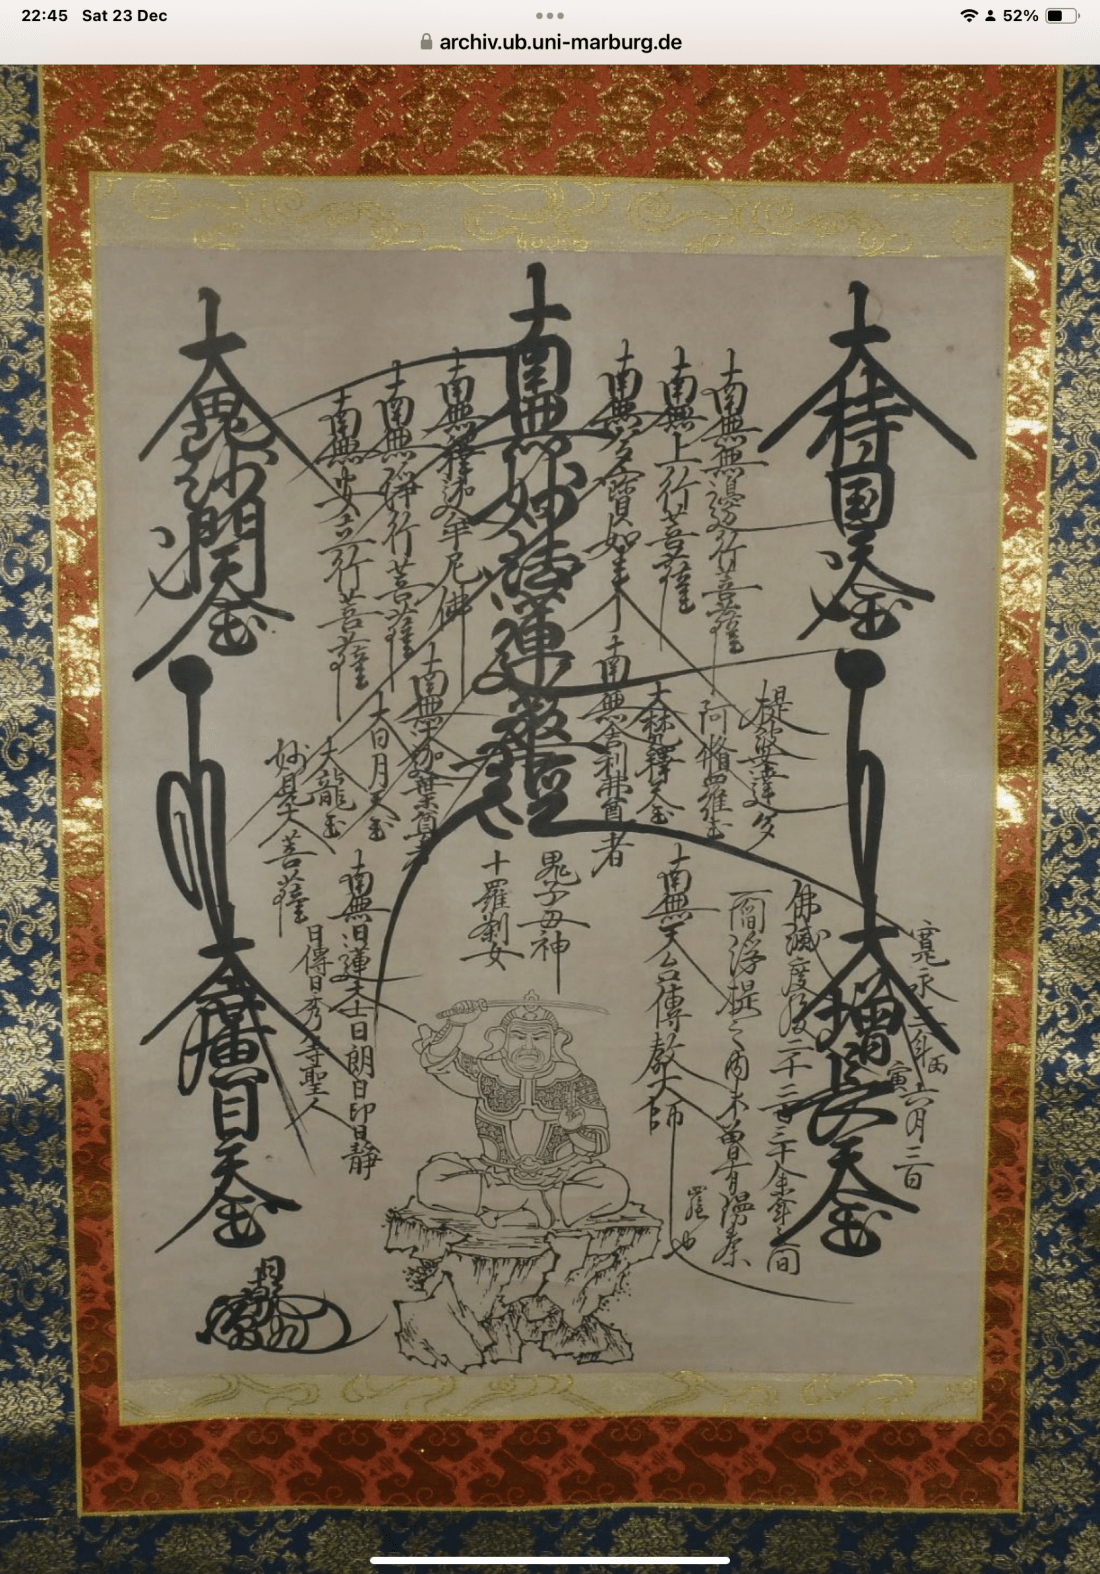 22:45 Sat 23 Dec
52%
archiv.ub.uni-marburg.de
大持国天王
南無無邊行菩薩
南無上行菩薩
南無多寶如来
南無妙法蓮華經
南無釋迦牟尼佛
南無浄行菩薩
南無安立行菩薩
大毘沙門天王
提婆達多
阿脩羅王
南無舎利弗尊者
南無迦葉尊者
大日月天王
大龍王
妙見大菩薩
寛永三年丙寅六月二日
大増長天王
佛滅度後二千二百二十余年之間
一閻浮提之内未曾有漫荼
羅也
南無天台傳教大師
鬼子母神
十羅刹女
南無日蓮大士日朗日印日静
日傳日秀等聖人
大廣目天王